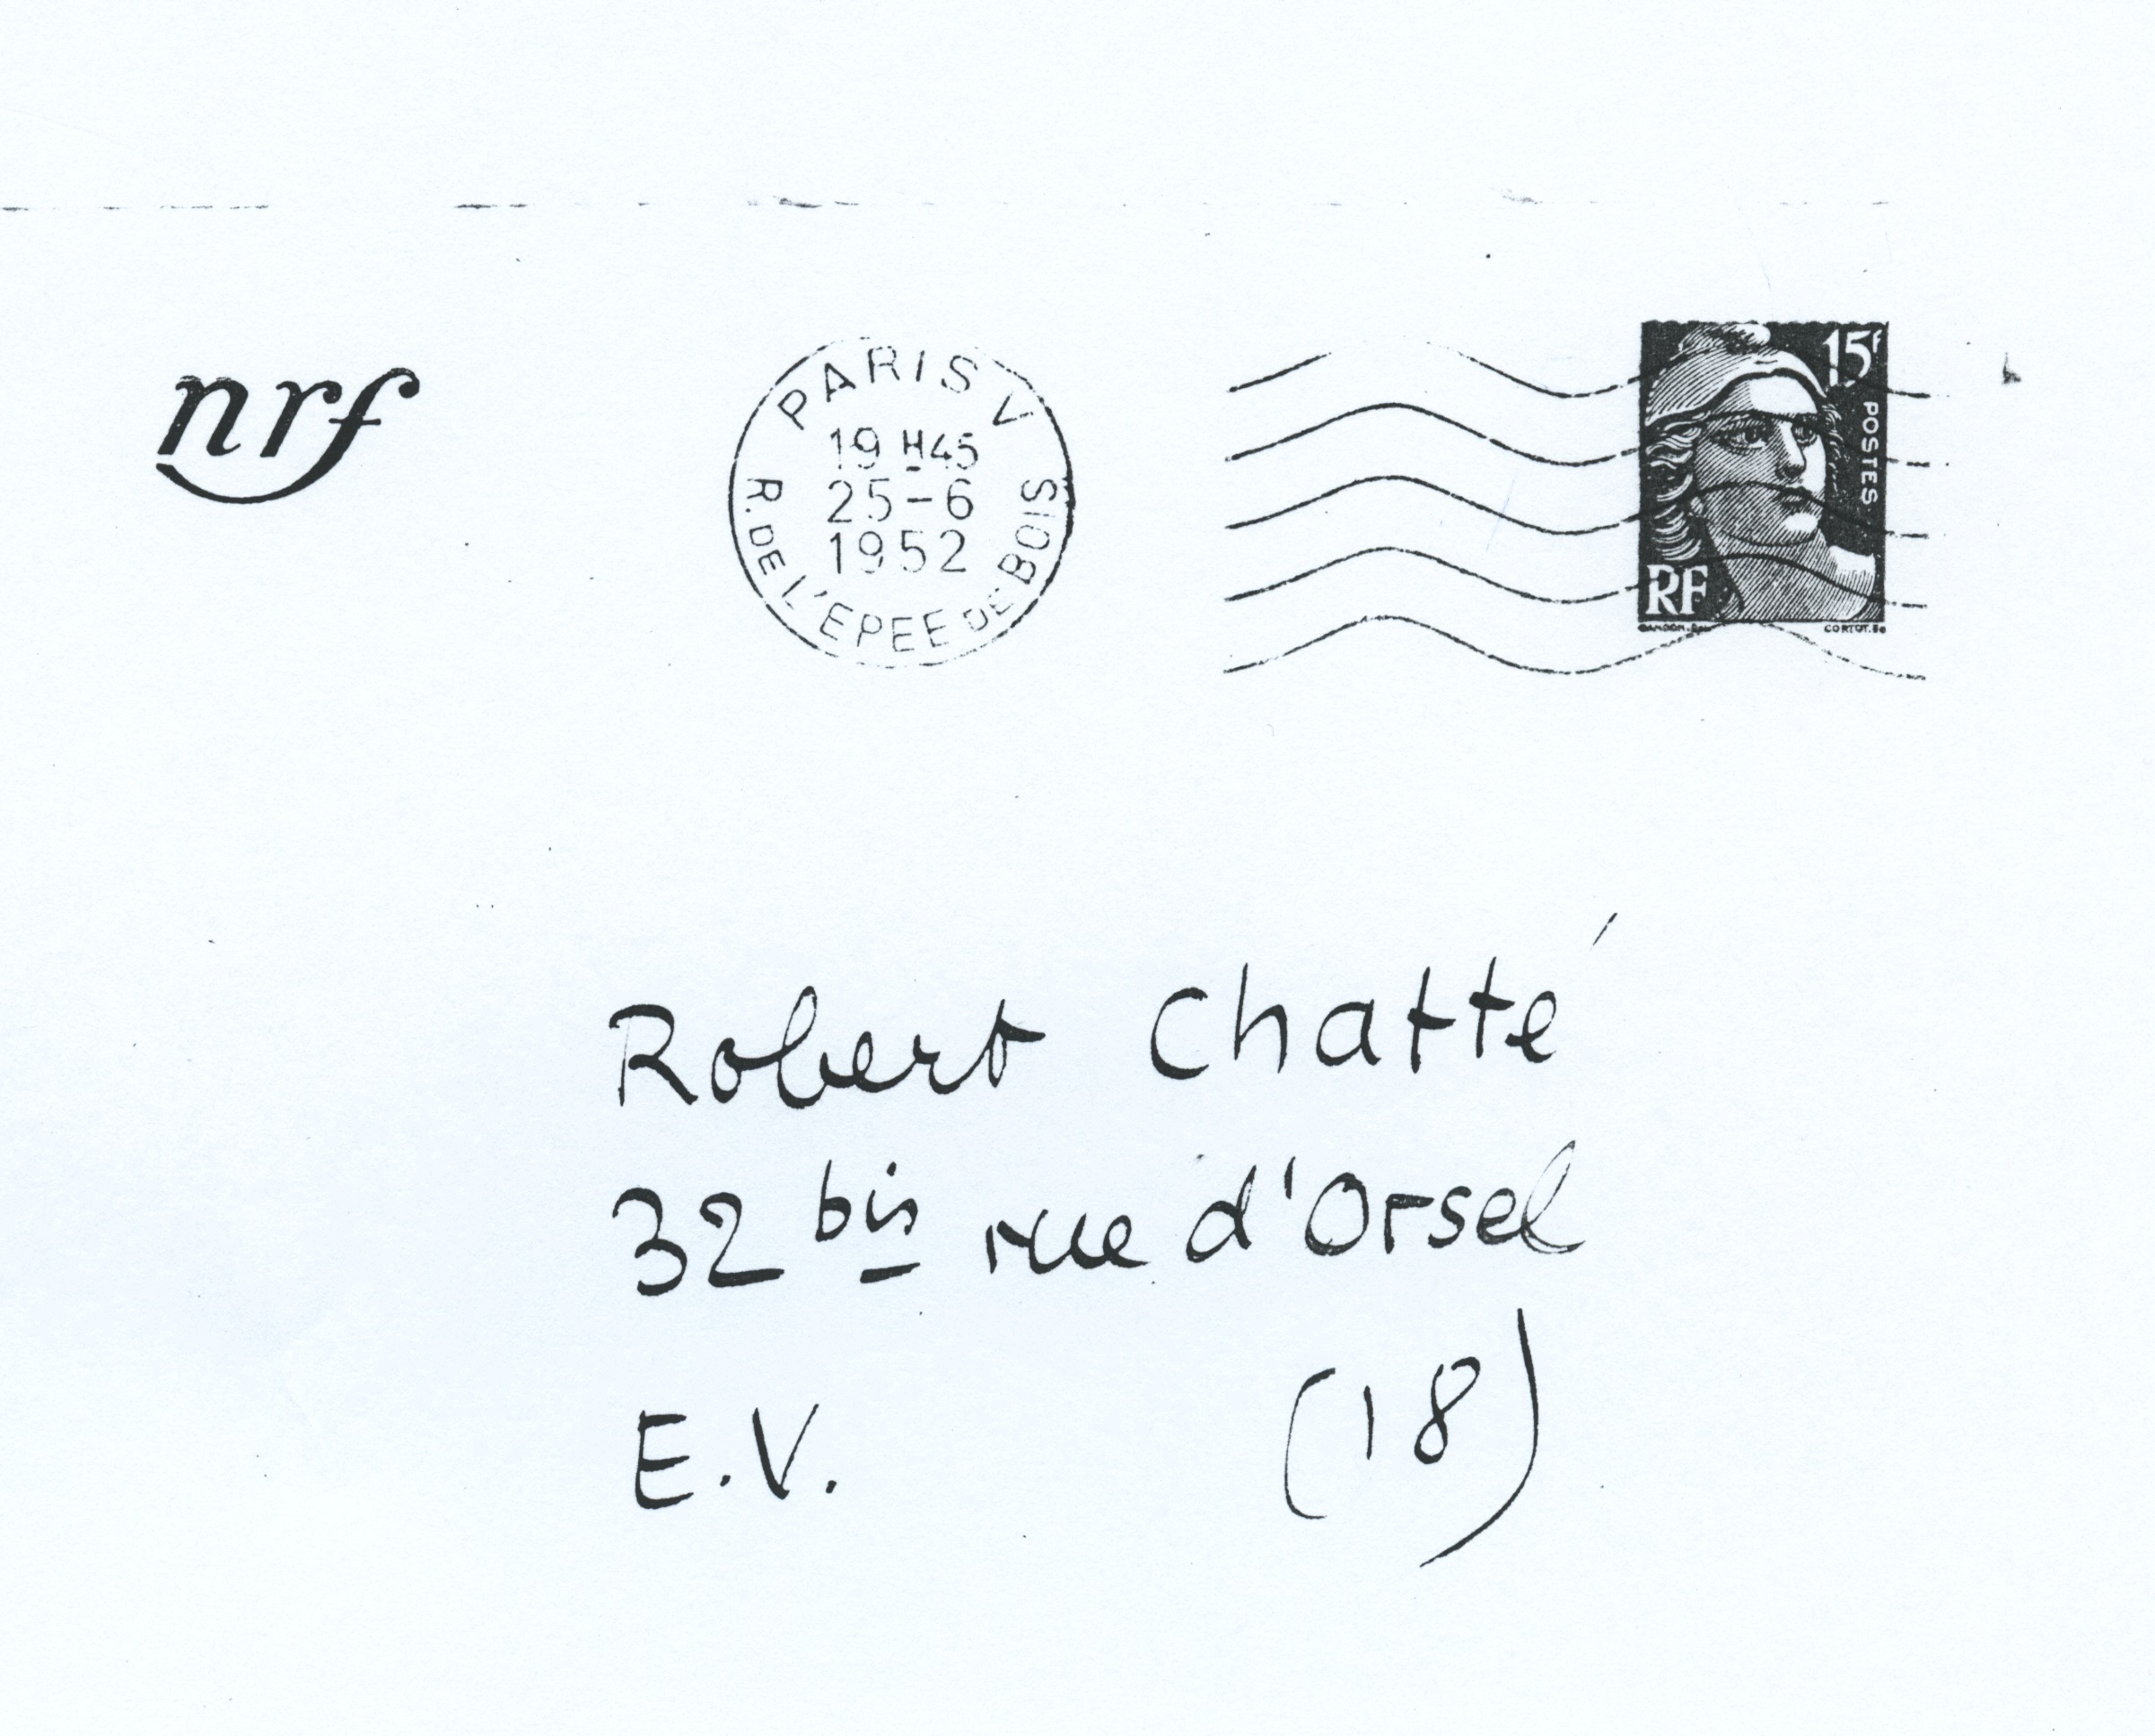 nrf
PARIS V
19 H45
25-6
1952
R. DE L'EPEE DE BOIS
15f
POSTES
RF
CORTOT.
Robert Chatté
32 bis rue d'Orsel
E.V. (18)